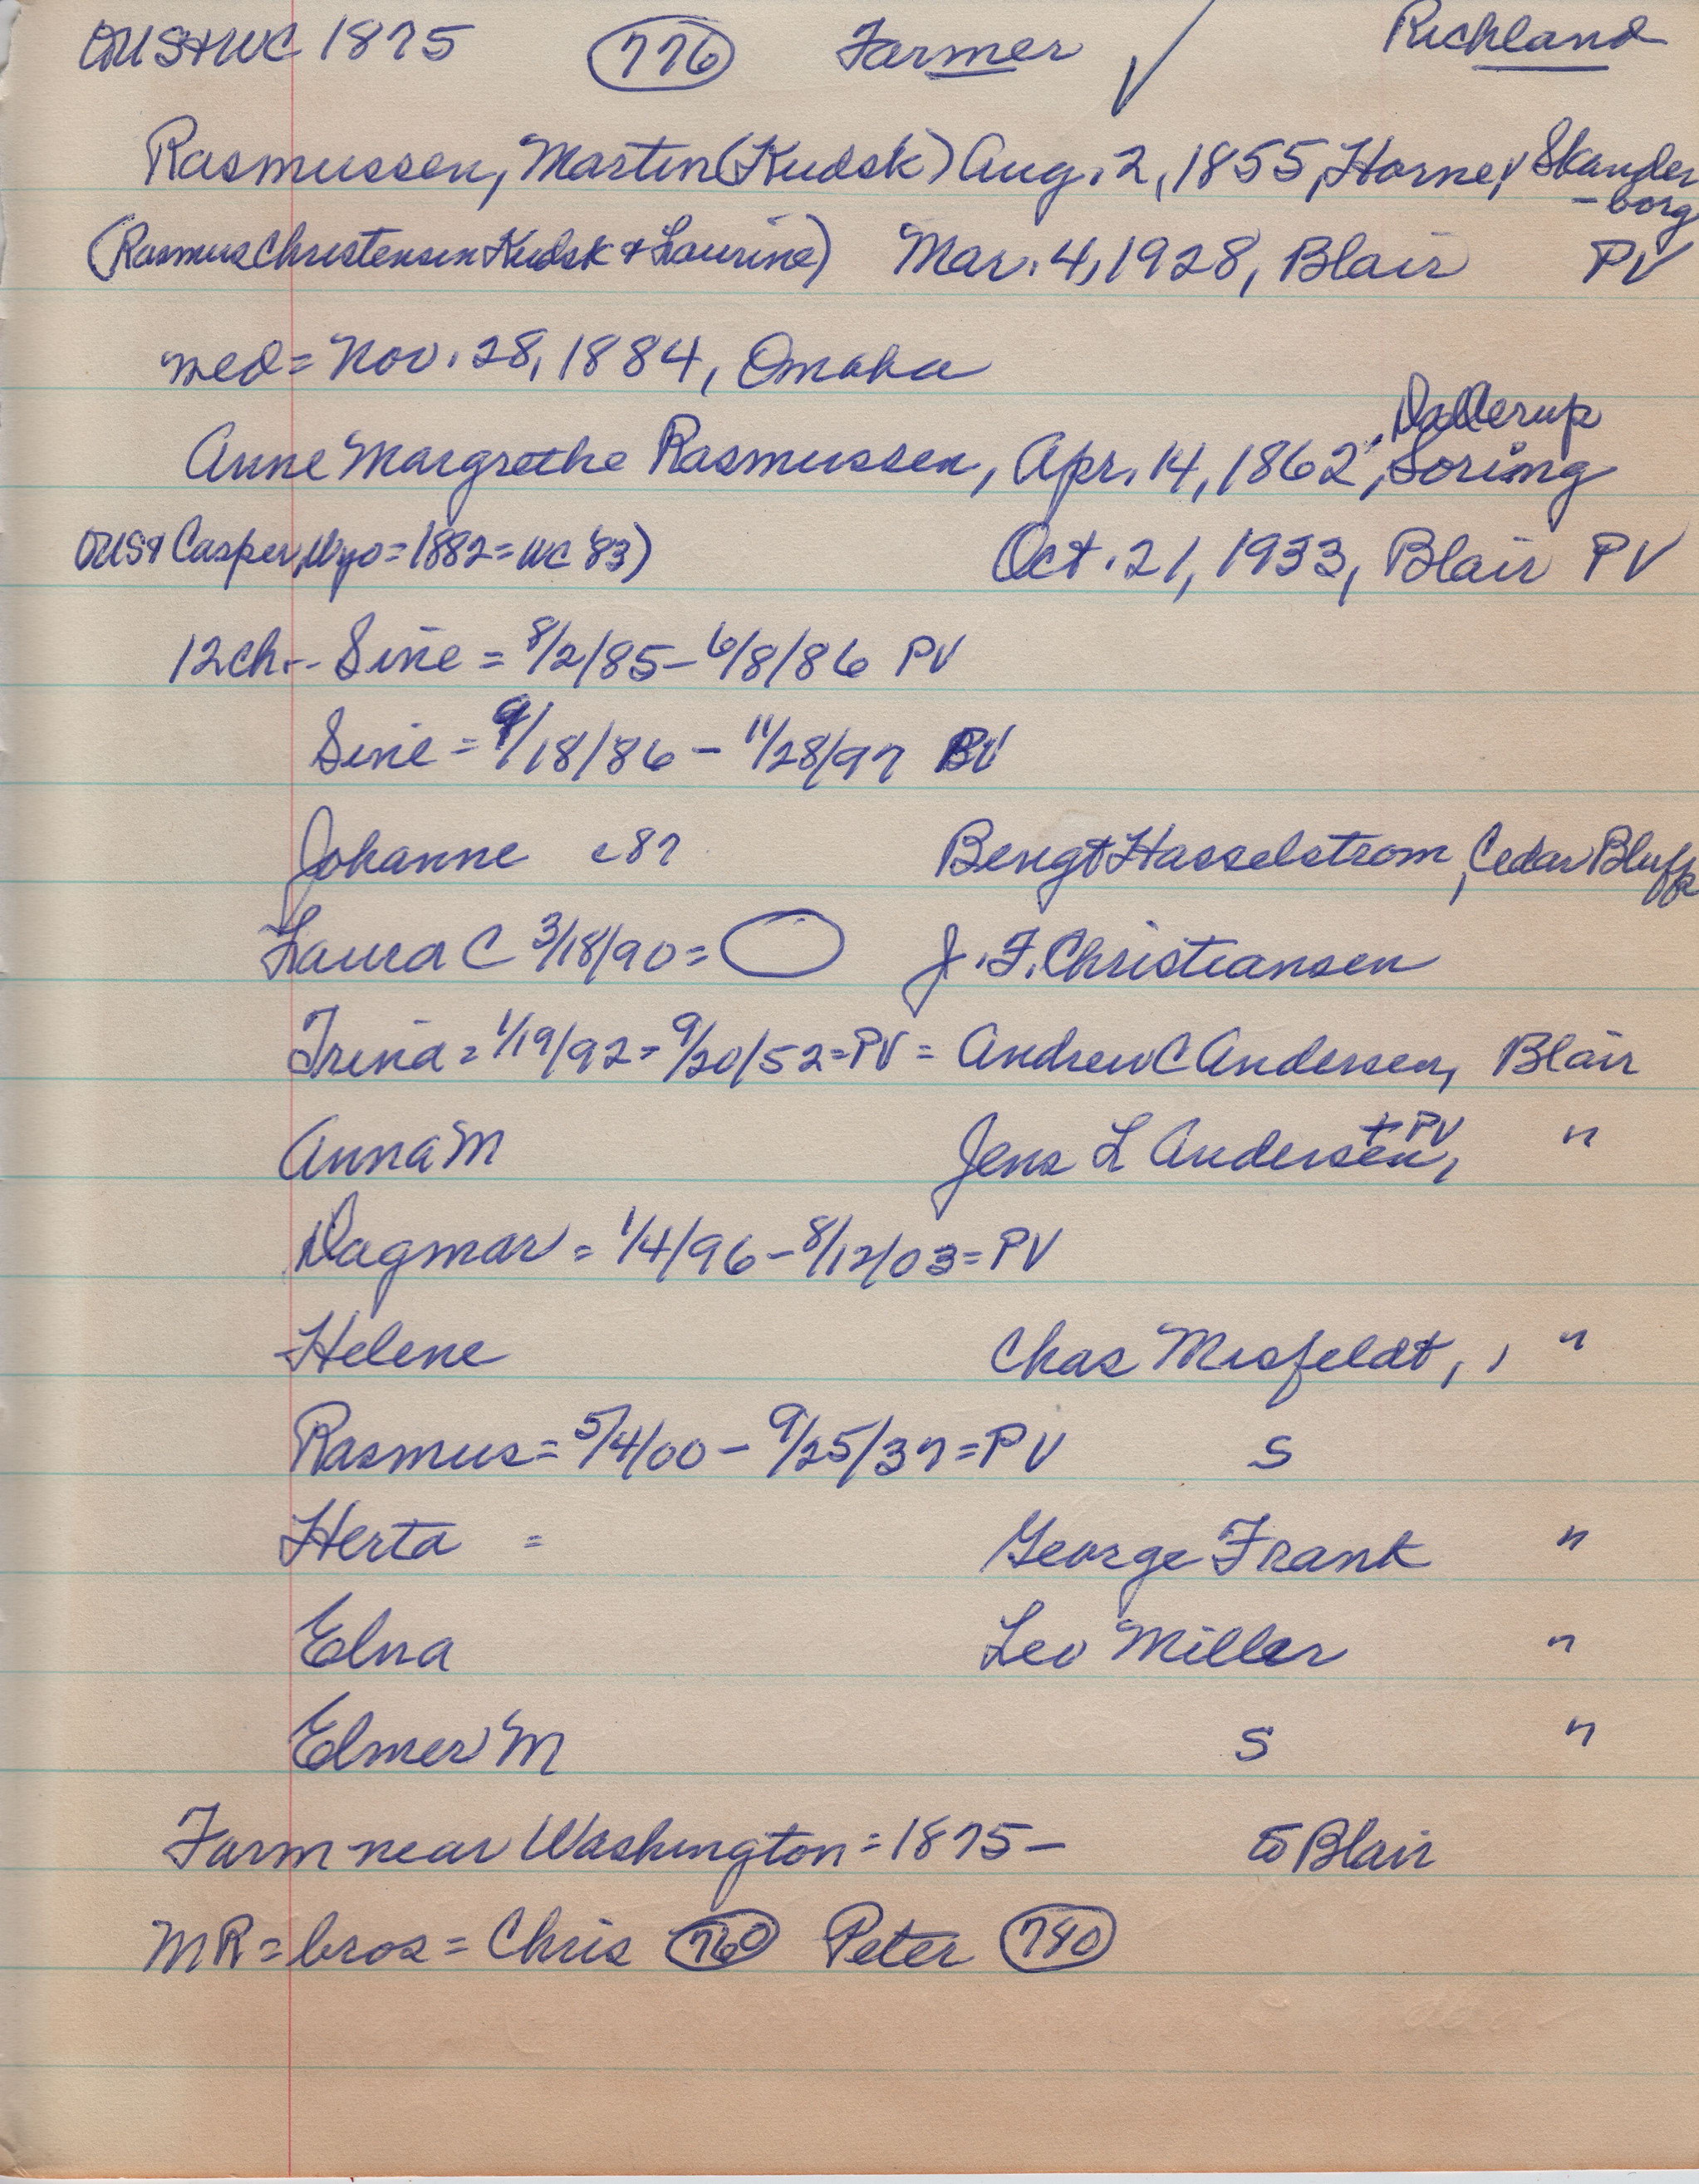 OUS+WC 1875 776 Farmer ✓ Richland
Rasmussen, Martin (Kudsk) Aug. 2, 1855, Horne, Skander
-borg
(Rasmus Christensen Kudsk & Laurine) Mar. 4, 1928, Blair PV
med = Nov. 28, 1884, Omaha
Dallerup
Anne Margrethe Rasmussen, Apr. 14, 1862, Soring
OUS+ Casper, Wyo = 1882 = WC '83) Oct. 21, 1933, Blair PV
12 ch-- Sine = 8/2/85 - 6/8/86 PV
Sine = 9/18/86 - 11/28/97 BV
Johanne c87 Bengt Hasselstrom, Cedar Bluffs
Laura C 3/18/90 = J. F. Christiansen
Trina = 1/19/92 = 9/20/52 = PV = Andrew C Andersen, Blair
+ PV
Anna M Jens L Andersen, "
Dagmar = 1/4/96 - 8/12/03 = PV
Helene Chas Misfeldt, , "
Rasmus = 5/4/00 - 9/25/37 = PV S
Herta = George Frank "
Elna Leo Miller "
Elmer M S "
Farm near Washington = 1875 - to Blair
MR = bros = Chris 760 Peter 780